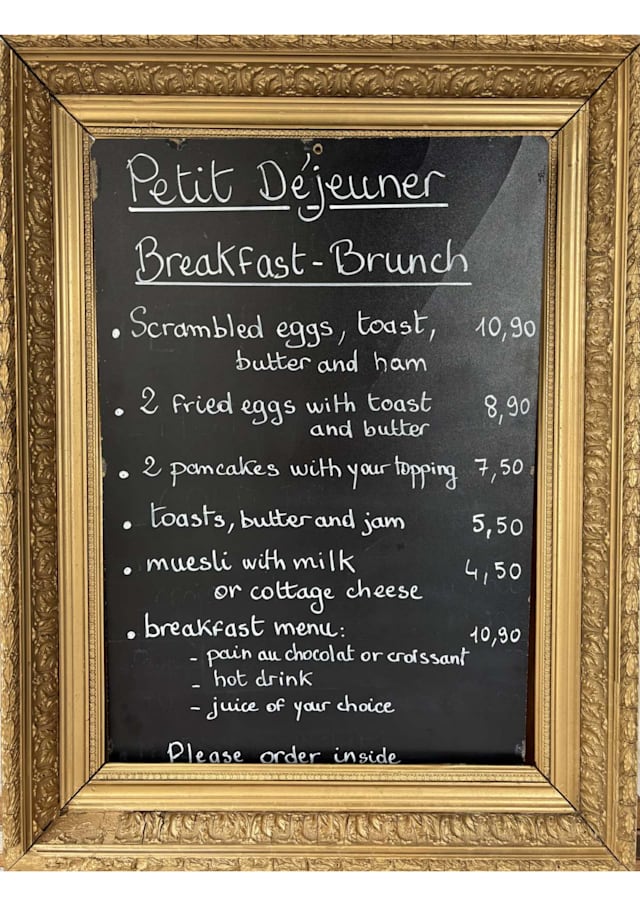 Petit Déjeuner
Breakfast-Brunch
• Scrambled eggs, toast, 10,90
butter and ham
• 2 fried eggs with toast 8,90
and butter
• 2 pamcakes with your topping 7,50
• toasts, butter and jam 5,50
• muesli with milk 4,50
or cottage cheese
• breakfast menu: 10,90
- pain au chocolat or croissant
- hot drink
- juice of your choice
Please order inside